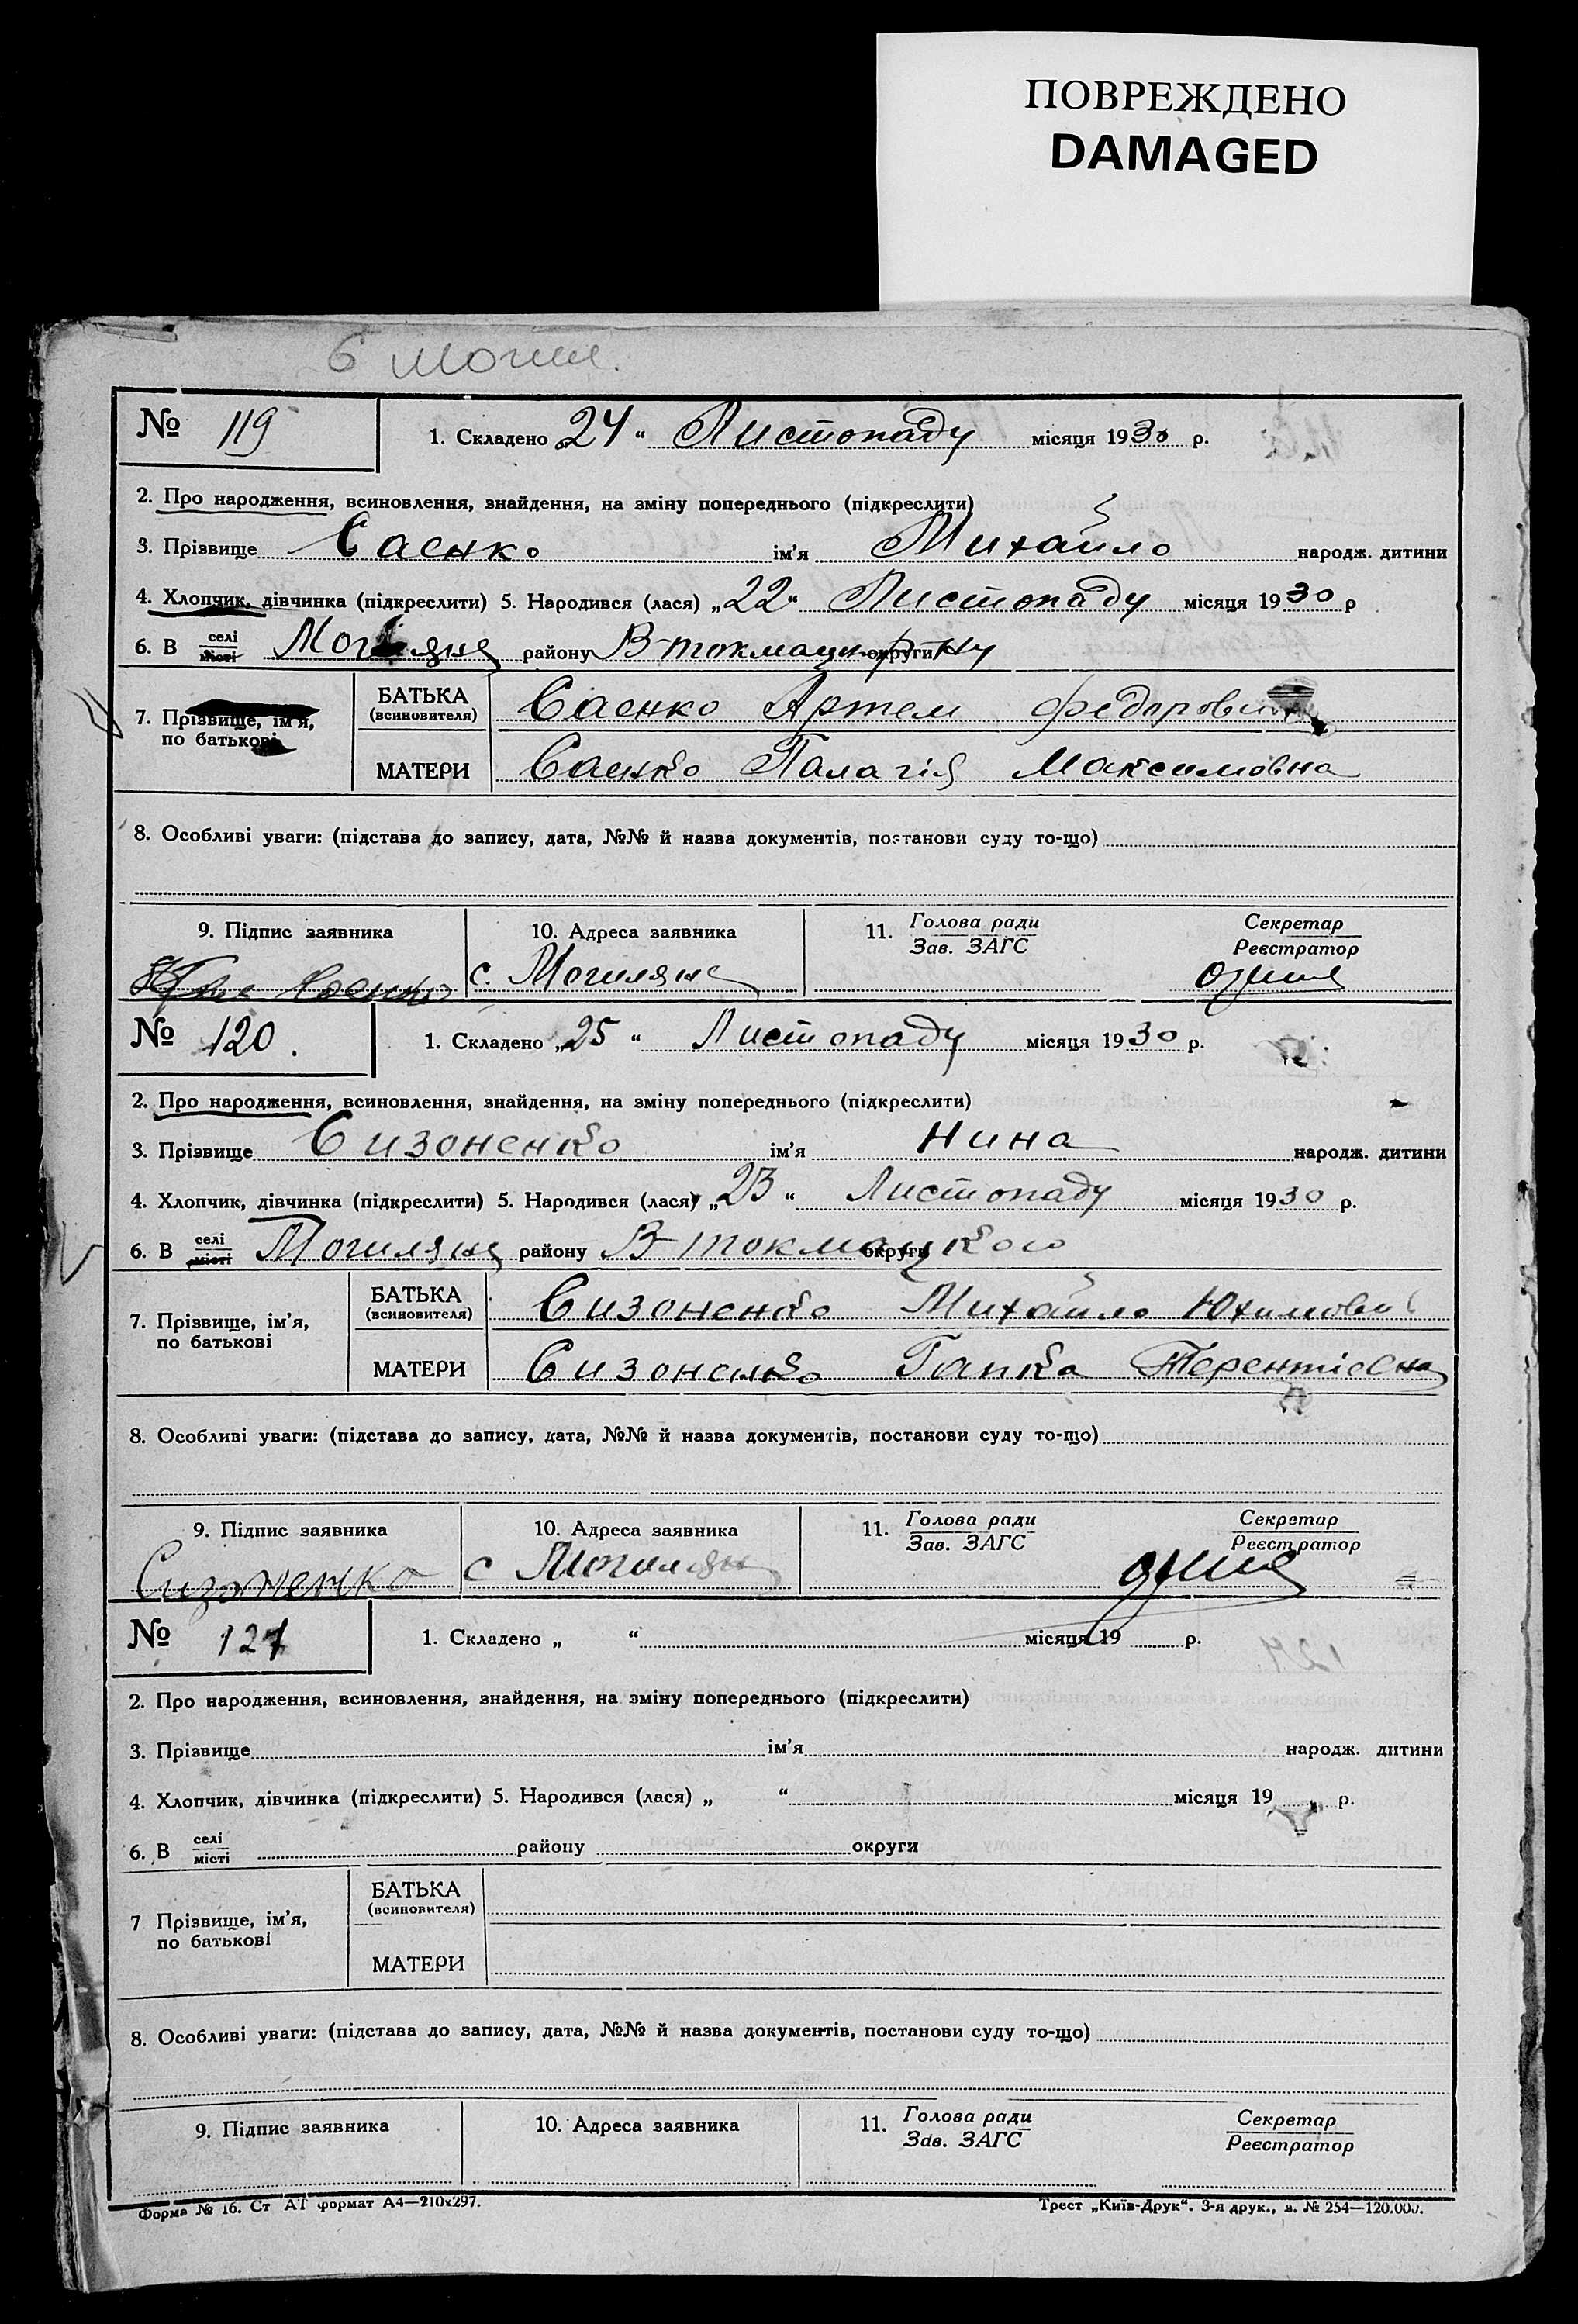 ПОВРЕЖДЕНО
DAMAGED
№ 119
1. Складено 24 “ Листопаду місяця 1930 р.
2. Про народження, всиновлення, знайдення, на зміну попереднього (підкреслити)
3. Прізвище Саенко ім’я Михайло народж. дитини
4. Хлопчик, дівчинка (підкреслити) 5. Народився (лася) „22“ Листопаду місяця 1930 р
6. В селі/місті району В-токмацк округи
7. Прізвище, ім’я, по батькові
БАТЬКА (всиновителя) Саенко Артем
МАТЕРИ Саенко Палагія Максимовна
8. Особливі уваги: (підстава до запису, дата, №№ й назва документів, постанови суду то-що)
9. Підпис заявника
10. Адреса заявника
11. Голова ради
Зав. ЗАГС
Секретар
Реєстратор
Саенко
с. Могиляне
№ 120.
1. Складено „25 “ Листопаду місяця 1930 р.
2. Про народження, всиновлення, знайдення, на зміну попереднього (підкреслити)
3. Прізвище Сизоненко ім’я Нина народж. дитини
4. Хлопчик, дівчинка (підкреслити) 5. Народився (лася) „23 “ Листопаду місяця 1930 р.
6. В селі/місті Могиляне району В-токмацкого округи
7. Прізвище, ім’я, по батькові
БАТЬКА (всиновителя) Сизоненко Михайло Юхимович
МАТЕРИ Сизоненко Гапка Терентіевна
8. Особливі уваги: (підстава до запису, дата, №№ й назва документів, постанови суду то-що)
9. Підпис заявника
10. Адреса заявника
11. Голова ради
Зав. ЗАГС
Секретар
Реєстратор
Сизоненко
с Могиляне
№ 121
1. Складено „ “ місяця 19 р.
2. Про народження, всиновлення, знайдення, на зміну попереднього (підкреслити)
3. Прізвище ім’я народж. дитини
4. Хлопчик, дівчинка (підкреслити) 5. Народився (лася) „ “ місяця 19 р.
6. В селі/місті району округи
7 Прізвище, ім’я, по батькові
БАТЬКА (всиновителя)
МАТЕРИ
8. Особливі уваги: (підстава до запису, дата, №№ й назва документів, постанови суду то-що)
9. Підпис заявника
10. Адреса заявника
11. Голова ради
Зав. ЗАГС
Секретар
Реєстратор
Форма № 16. Ст АТ формат А4—210х297.
Трест „Київ-Друк“. 3-я друк., з. № 254—120.000.